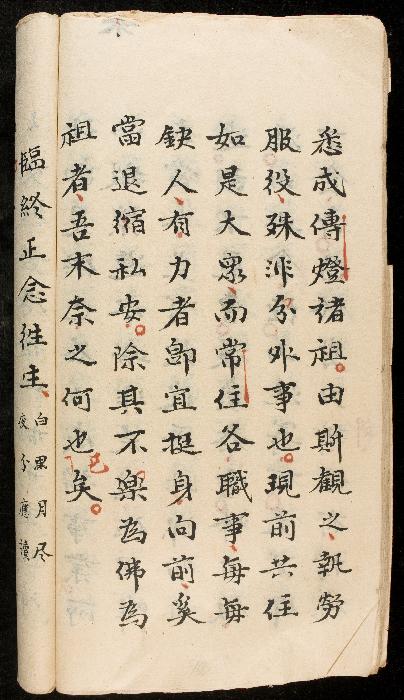 悉成傳燈諸祖由斯觀之執勞
服役殊非分外事也現前共住
如是大眾而常住各職事每每
缺人有力者卽宜挺身向前奚
當退縮私安除其不樂為佛為
祖者吾末奈之何也矣
已
臨終正念往生
白黑月尽
夜分應讀